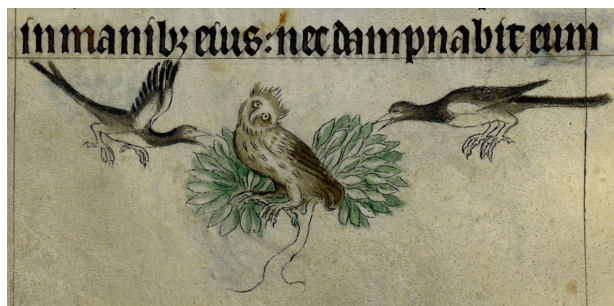 in manibꝫ eius: nec dampnabit eum